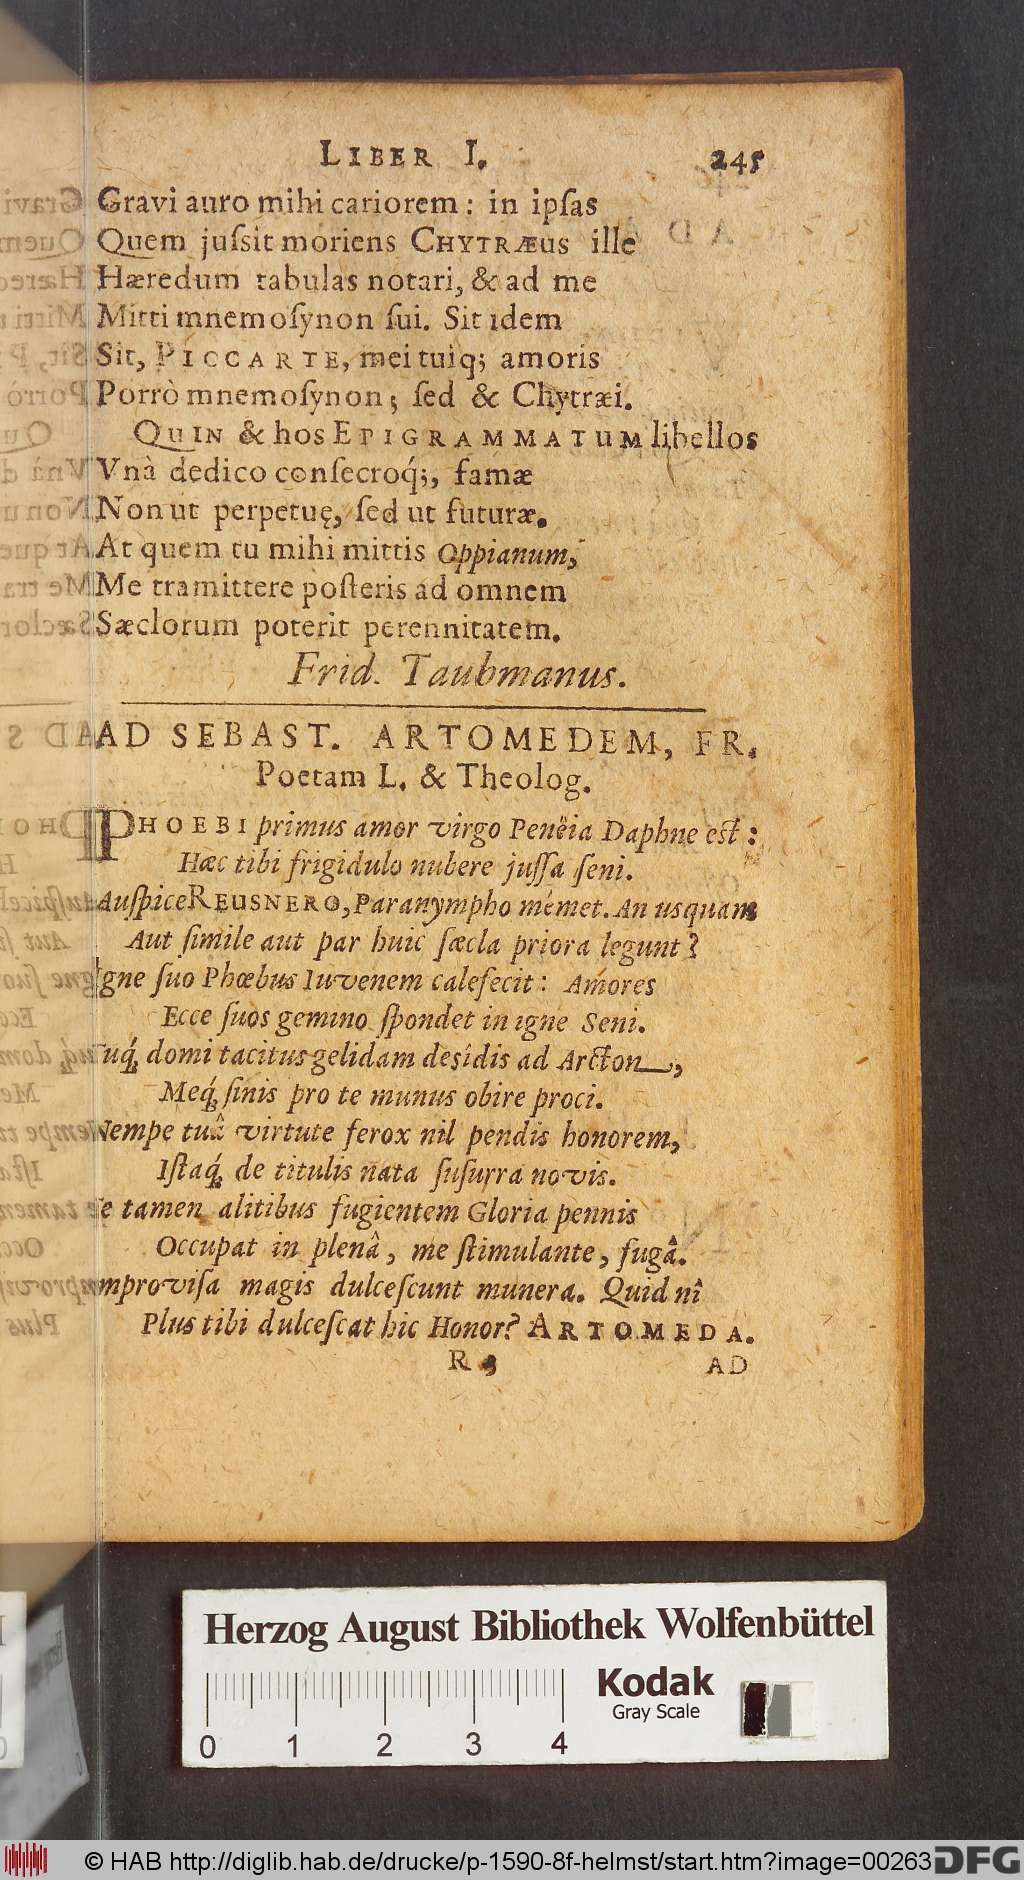 LIBER I. 245
Gravi auro mihi cariorem: in ipſas
Quem juſsit moriens CHYTRÆUS ille
Hæredum tabulas notari, & ad me
Mitti mnemoſynon ſui. Sit idem
Sit, PICCARTE, mei tuiq; amoris
Porrò mnemoſynon; ſed & Chytræi.
QUIN & hos EPIGRAMMATUM libellos
Vnà dedico conſecroq́;, famæ
Non ut perpetuę, ſed ut futuræ.
At quem tu mihi mittis Oppianum,
Me tramittere poſteris ad omnem
Sæclorum poterit perennitatem.
Frid. Taubmanus.
AD SEBAST. ARTOMEDEM, FR.
Poetam L. & Theolog.
PHOEBI primus amor virgo Penëia Daphne est:
Hæc tibi frigidulo nubere juſſa ſeni.
Auſpice REUSNERO, Paranympho mémet. An usquam
Aut ſimile aut par huic ſæcla priora legunt?
Igne ſuo Phœbus Iuvenem calefecit: Amores
Ecce ſuos gemino ſpondet in igne Seni.
Tuq́; domi tacitus gelidam desídis ad Arcton,
Meq́; ſinis pro te munus obire proci.
Nempe tuâ virtute ferox nil pendis honorem,
Iſtaq́; de titulis nata ſuſurra novis.
Te tamen alitibus fugientem Gloria pennis
Occupat in plenâ, me ſtimulante, fugâ.
Improviſa magis dulceſcunt munera. Quid nî
Plus tibi dulceſcat hic Honor? ARTOMEDA.
R 3 AD
Herzog August Bibliothek Wolfenbüttel
Kodak
Gray Scale
0 1 2 3 4
© HAB http://diglib.hab.de/drucke/p-1590-8f-helmst/start.htm?image=00263 DFG